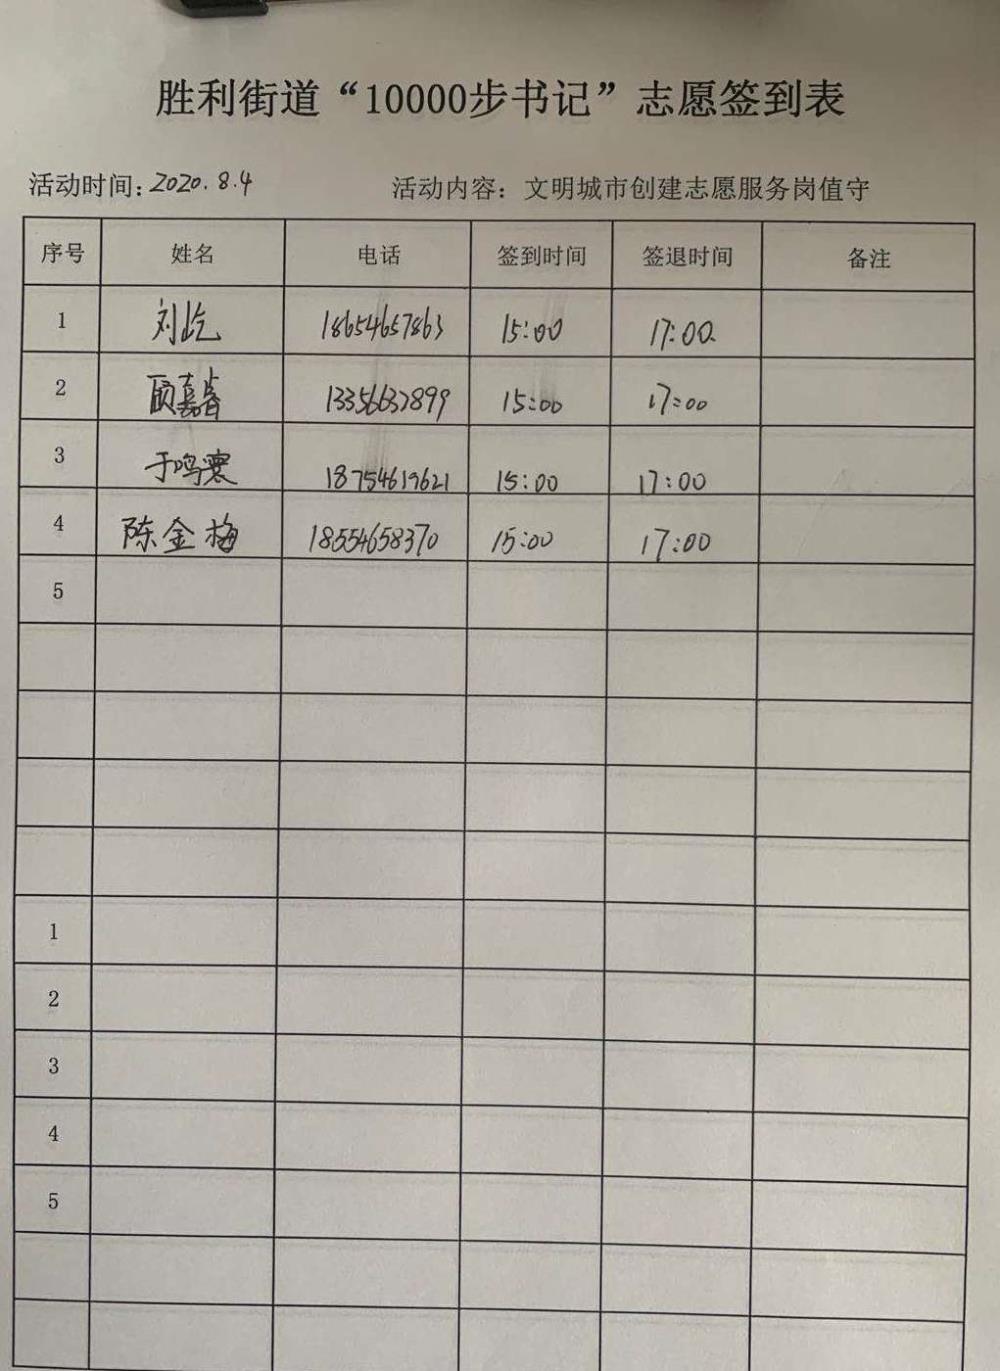 胜利街道“10000步书记”志愿签到表
活动时间：2020.8.4 活动内容：文明城市创建志愿服务岗值守
序号 姓名 电话 签到时间 签退时间 备注
1 刘屹 18654657863 15:00 17:00
2 顾嘉睿 13356637899 15:00 17:00
3 于鸣 18754619621 15:00 17:00
4 陈金梅 18554658370 15:00 17:00
5
1
2
3
4
5